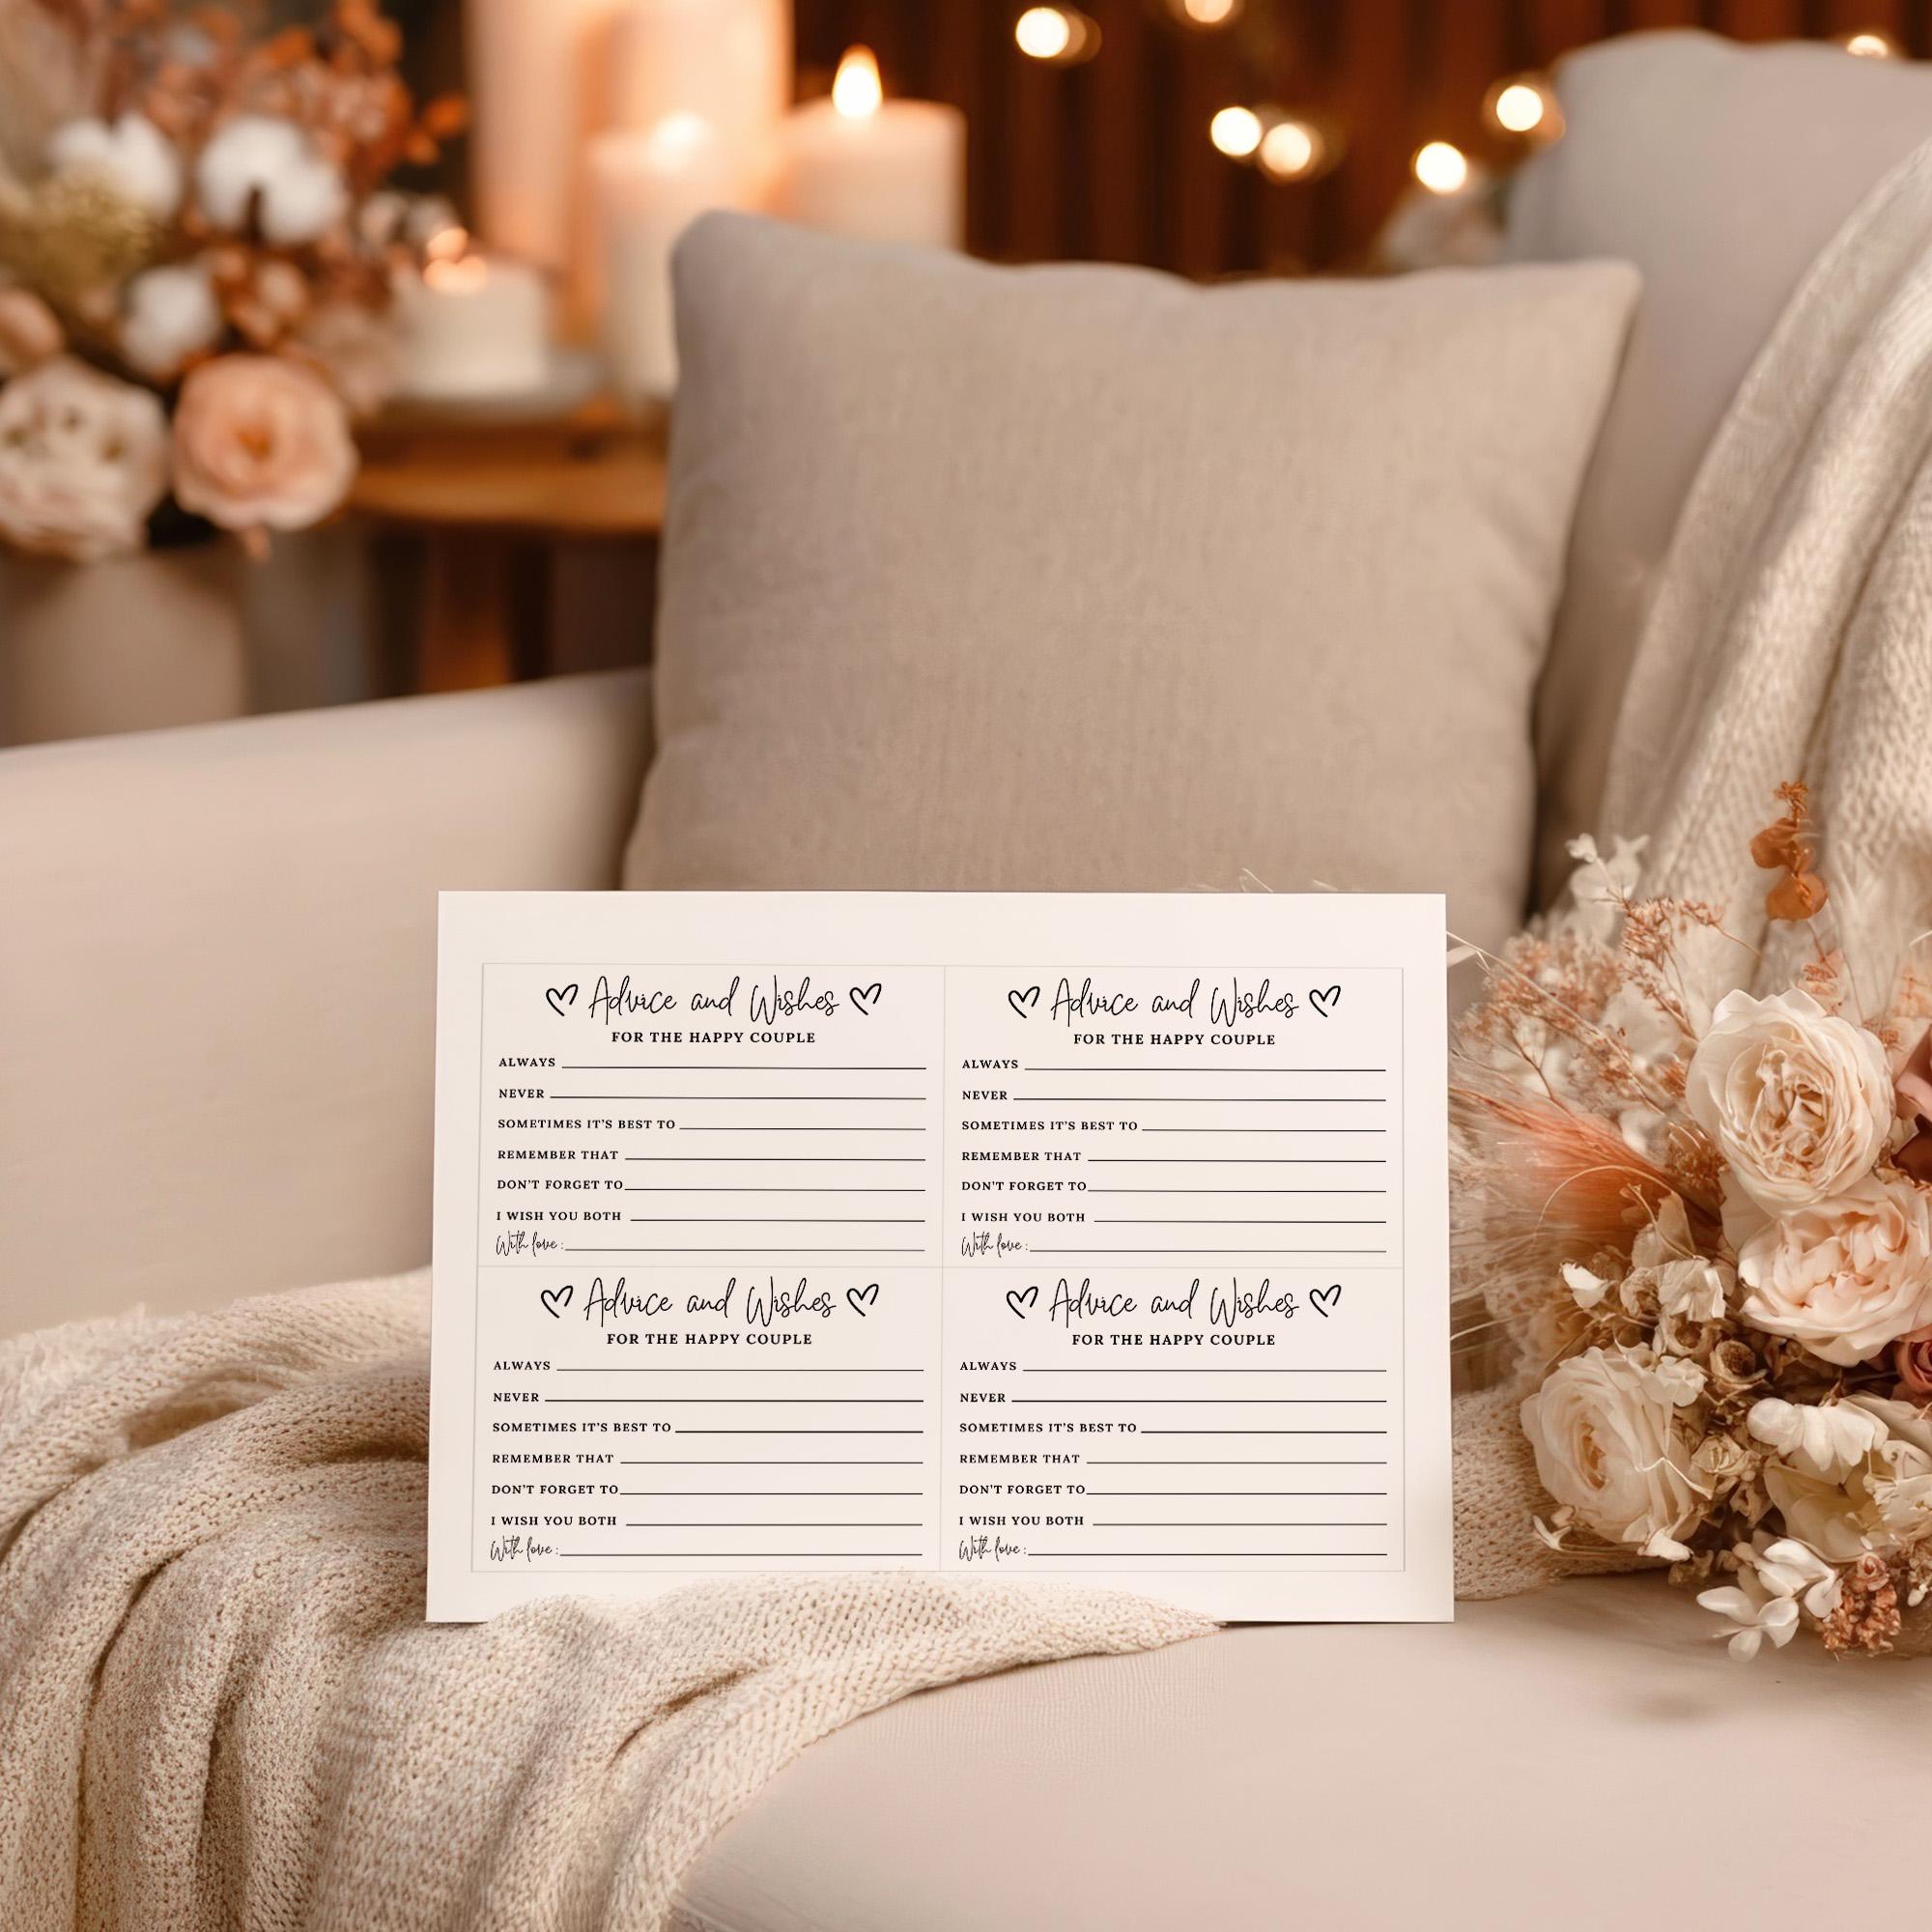 Advice and Wishes
FOR THE HAPPY COUPLE
ALWAYS
NEVER
SOMETIMES IT'S BEST TO
REMEMBER THAT
DON'T FORGET TO
I WISH YOU BOTH
With love :
Advice and Wishes
FOR THE HAPPY COUPLE
ALWAYS
NEVER
SOMETIMES IT'S BEST TO
REMEMBER THAT
DON'T FORGET TO
I WISH YOU BOTH
With love :
Advice and Wishes
FOR THE HAPPY COUPLE
ALWAYS
NEVER
SOMETIMES IT'S BEST TO
REMEMBER THAT
DON'T FORGET TO
I WISH YOU BOTH
With love :
Advice and Wishes
FOR THE HAPPY COUPLE
ALWAYS
NEVER
SOMETIMES IT'S BEST TO
REMEMBER THAT
DON'T FORGET TO
I WISH YOU BOTH
With love :